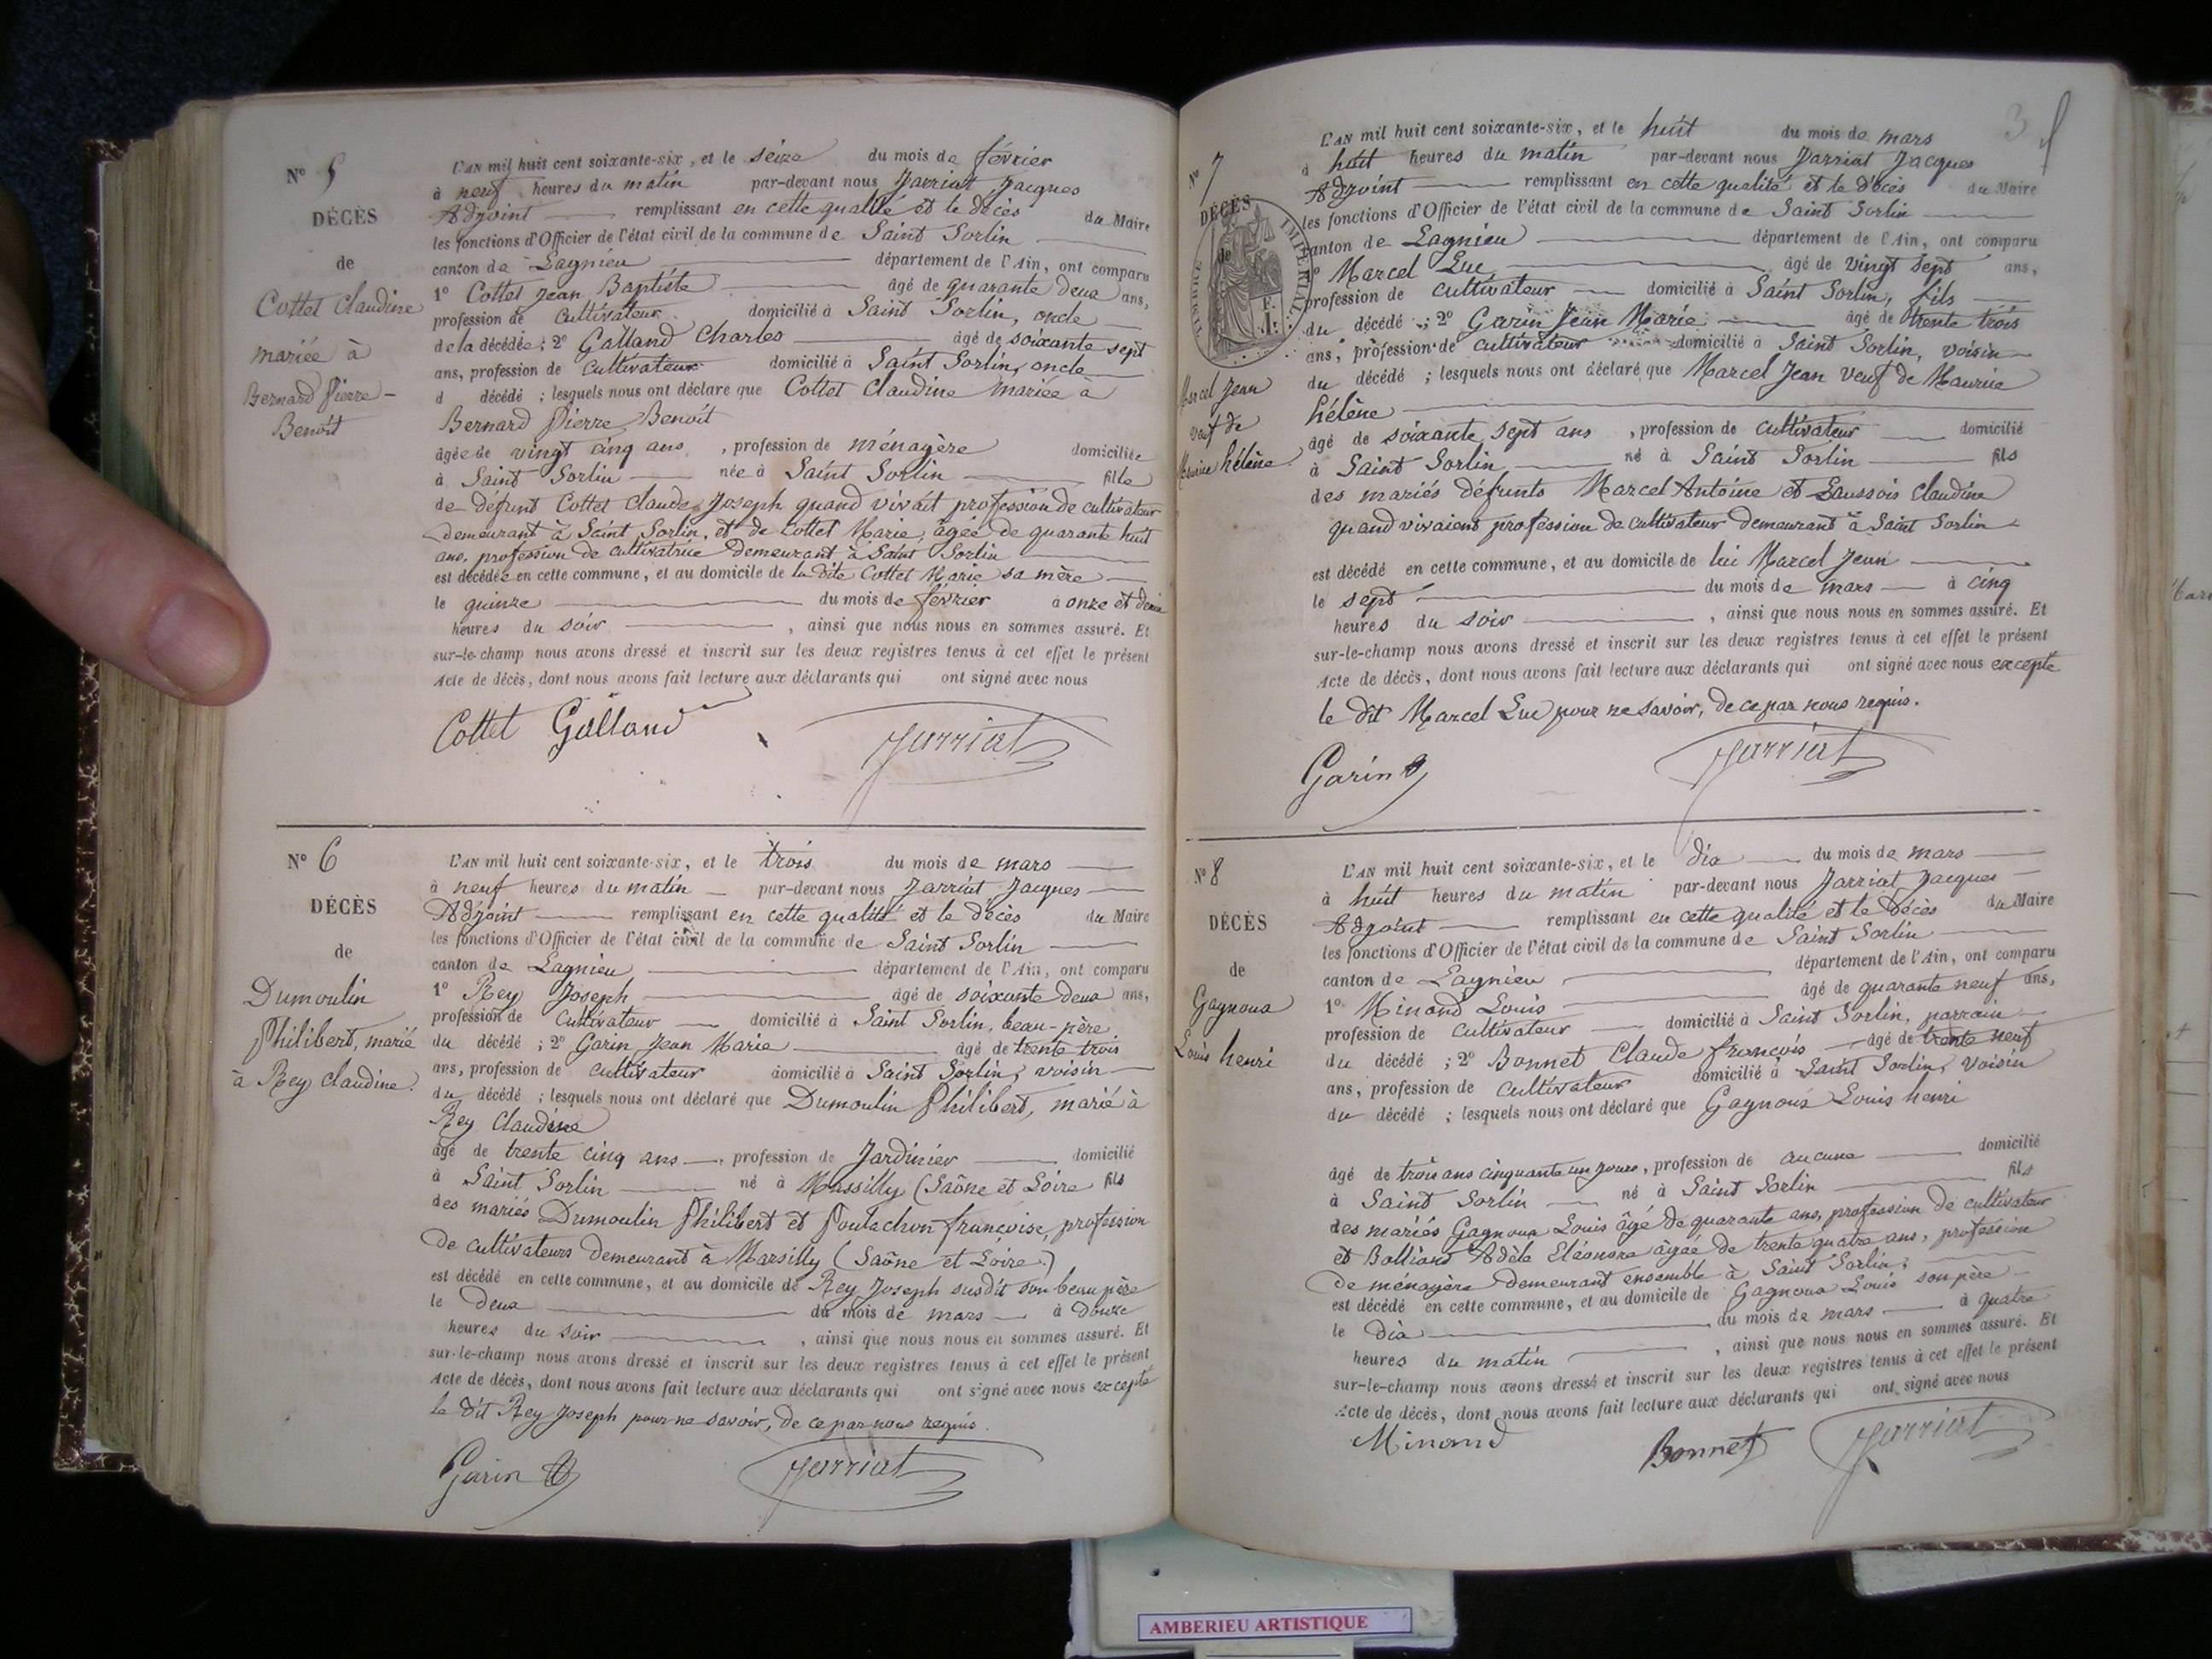 N° 5
DÉCÈS
de
Cottet Claudine
mariée à
Bernard Pierre-
Benoit
L'AN mil huit cent soixante-six, et le seize du mois de février
à neuf heures du matin par-devant nous Jarriat Jacques
Adjoint remplissant en cette qualité et le décès du Maire
les fonctions d'Officier de l'état civil de la commune de Saint Sorlin
canton de Lagnieu département de l'Ain, ont comparu
1° Cottet Jean Baptiste âgé de quarante deux ans,
profession de cultivateur domicilié à Saint Sorlin, oncle
de la décédée ; 2° Galland Charles âgé de soixante sept
ans, profession de cultivateur domicilié à Saint Sorlin, oncle
d décédé ; lesquels nous ont déclaré que Cottet Claudine mariée à
Bernard Pierre Benoit
âgée de vingt cinq ans, profession de ménagère domiciliée
à Saint Sorlin née à Saint Sorlin fille
de défunt Cottet Claude Joseph quand vivait profession de cultivateur
demeurant à Saint Sorlin, et de Cottet Marie, âgée de quarante huit
ans, profession de cultivatrice demeurant à Saint Sorlin
est décédée en cette commune, et au domicile de la dite Cottet Marie sa mère
le quinze du mois de février à onze et demie
heures du soir, ainsi que nous nous en sommes assuré. Et
sur-le-champ nous avons dressé et inscrit sur les deux registres tenus à cet effet le présent
Acte de décès, dont nous avons fait lecture aux déclarants qui ont signé avec nous
Cottet Galland Jarriat
N° 6
DÉCÈS
de
Dumoulin
Philibert, marié
à Rey Claudine.
L'AN mil huit cent soixante-six, et le trois du mois de mars
à neuf heures du matin par-devant nous Jarriat Jacques
Adjoint remplissant en cette qualité et le décès du Maire
les fonctions d'Officier de l'état civil de la commune de Saint Sorlin
canton de Lagnieu département de l'Ain, ont comparu
1° Rey Joseph âgé de soixante deux ans,
profession de cultivateur domicilié à Saint Sorlin, beau-père
du décédé ; 2° Garin Jean Marie âgé de trente trois
ans, profession de cultivateur domicilié à Saint Sorlin, voisin
du décédé ; lesquels nous ont déclaré que Dumoulin Philibert, marié à
Rey Claudine
âgé de trente cinq ans, profession de Jardinier domicilié
à Saint Sorlin né à Massilly (Saône et Loire fils
des mariés Dumoulin Philibert et Poulachon françoise, profession
de cultivateurs demeurant à Marsilly (Saône et Loire.)
est décédé en cette commune, et au domicile de Rey Joseph susdit son beau père
le deux du mois de mars à douze
heures du soir, ainsi que nous nous en sommes assuré. Et
sur-le-champ nous avons dressé et inscrit sur les deux registres tenus à cet effet le présent
Acte de décès, dont nous avons fait lecture aux déclarants qui ont signé avec nous excepté
le dit Rey Joseph pour ne savoir, de ce par nous requis.
Garin Jarriat
3
N° 7
DÉCÈS
de
TIMBRE IMPÉRIAL
Marcel Jean
veuf de
Maurice hélène
L'AN mil huit cent soixante-six, et le huit du mois de mars
à huit heures du matin par-devant nous Jarriat Jacques
Adjoint remplissant en cette qualité et le décès du Maire
les fonctions d'Officier de l'état civil de la commune de Saint Sorlin
canton de Lagnieu département de l'Ain, ont comparu
1° Marcel Luc âgé de vingt sept ans,
profession de cultivateur domicilié à Saint Sorlin, fils
du décédé ; 2° Garin Jean Marie âgé de trente trois
ans, profession de cultivateur domicilié à Saint Sorlin, voisin
du décédé ; lesquels nous ont déclaré que Marcel Jean veuf de Maurice
hélène
âgé de soixante sept ans, profession de cultivateur domicilié
à Saint Sorlin né à Saint Sorlin fils
des mariés défunts Marcel Antoine et Laussois Claudine
quand vivaient profession de cultivateur demeurant à Saint Sorlin
est décédé en cette commune, et au domicile de lui Marcel Jean
le sept du mois de mars à cinq
heures du soir, ainsi que nous nous en sommes assuré. Et
sur-le-champ nous avons dressé et inscrit sur les deux registres tenus à cet effet le présent
Acte de décès, dont nous avons fait lecture aux déclarants qui ont signé avec nous excepté
le dit Marcel Luc pour ne savoir, de ce par nous requis.
Garin Jarriat
N° 8
DÉCÈS
de
Gagnoux
Louis henri
L'AN mil huit cent soixante-six, et le dix du mois de mars
à huit heures du matin par-devant nous Jarriat Jacques
Adjoint remplissant en cette qualité et le décès du Maire
les fonctions d'Officier de l'état civil de la commune de Saint Sorlin
canton de Lagnieu département de l'Ain, ont comparu
1° Minand Louis âgé de quarante neuf ans,
profession de cultivateur domicilié à Saint Sorlin, parrain
du décédé ; 2° Bonnet Claude françois âgé de trente neuf
ans, profession de cultivateur domicilié à Saint Sorlin, voisin
du décédé ; lesquels nous ont déclaré que Gagnoux Louis henri
âgé de trois ans cinquante un jours, profession de aucune domicilié
à Saint Sorlin né à Saint Sorlin fils
des mariés Gagnoux Louis âgé de quarante ans, profession de cultivateur
et Bolliand Adèle Eléonore âgée de trente quatre ans, profession
de ménagère demeurant ensemble à Saint Sorlin,
est décédé en cette commune, et au domicile de Gagnoux Louis son père
le dix du mois de mars à quatre
heures du matin, ainsi que nous nous en sommes assuré. Et
sur-le-champ nous avons dressé et inscrit sur les deux registres tenus à cet effet le présent
Acte de décès, dont nous avons fait lecture aux déclarants qui ont signé avec nous
Minand Bonnet Jarriat
AMBERIEU ARTISTIQUE